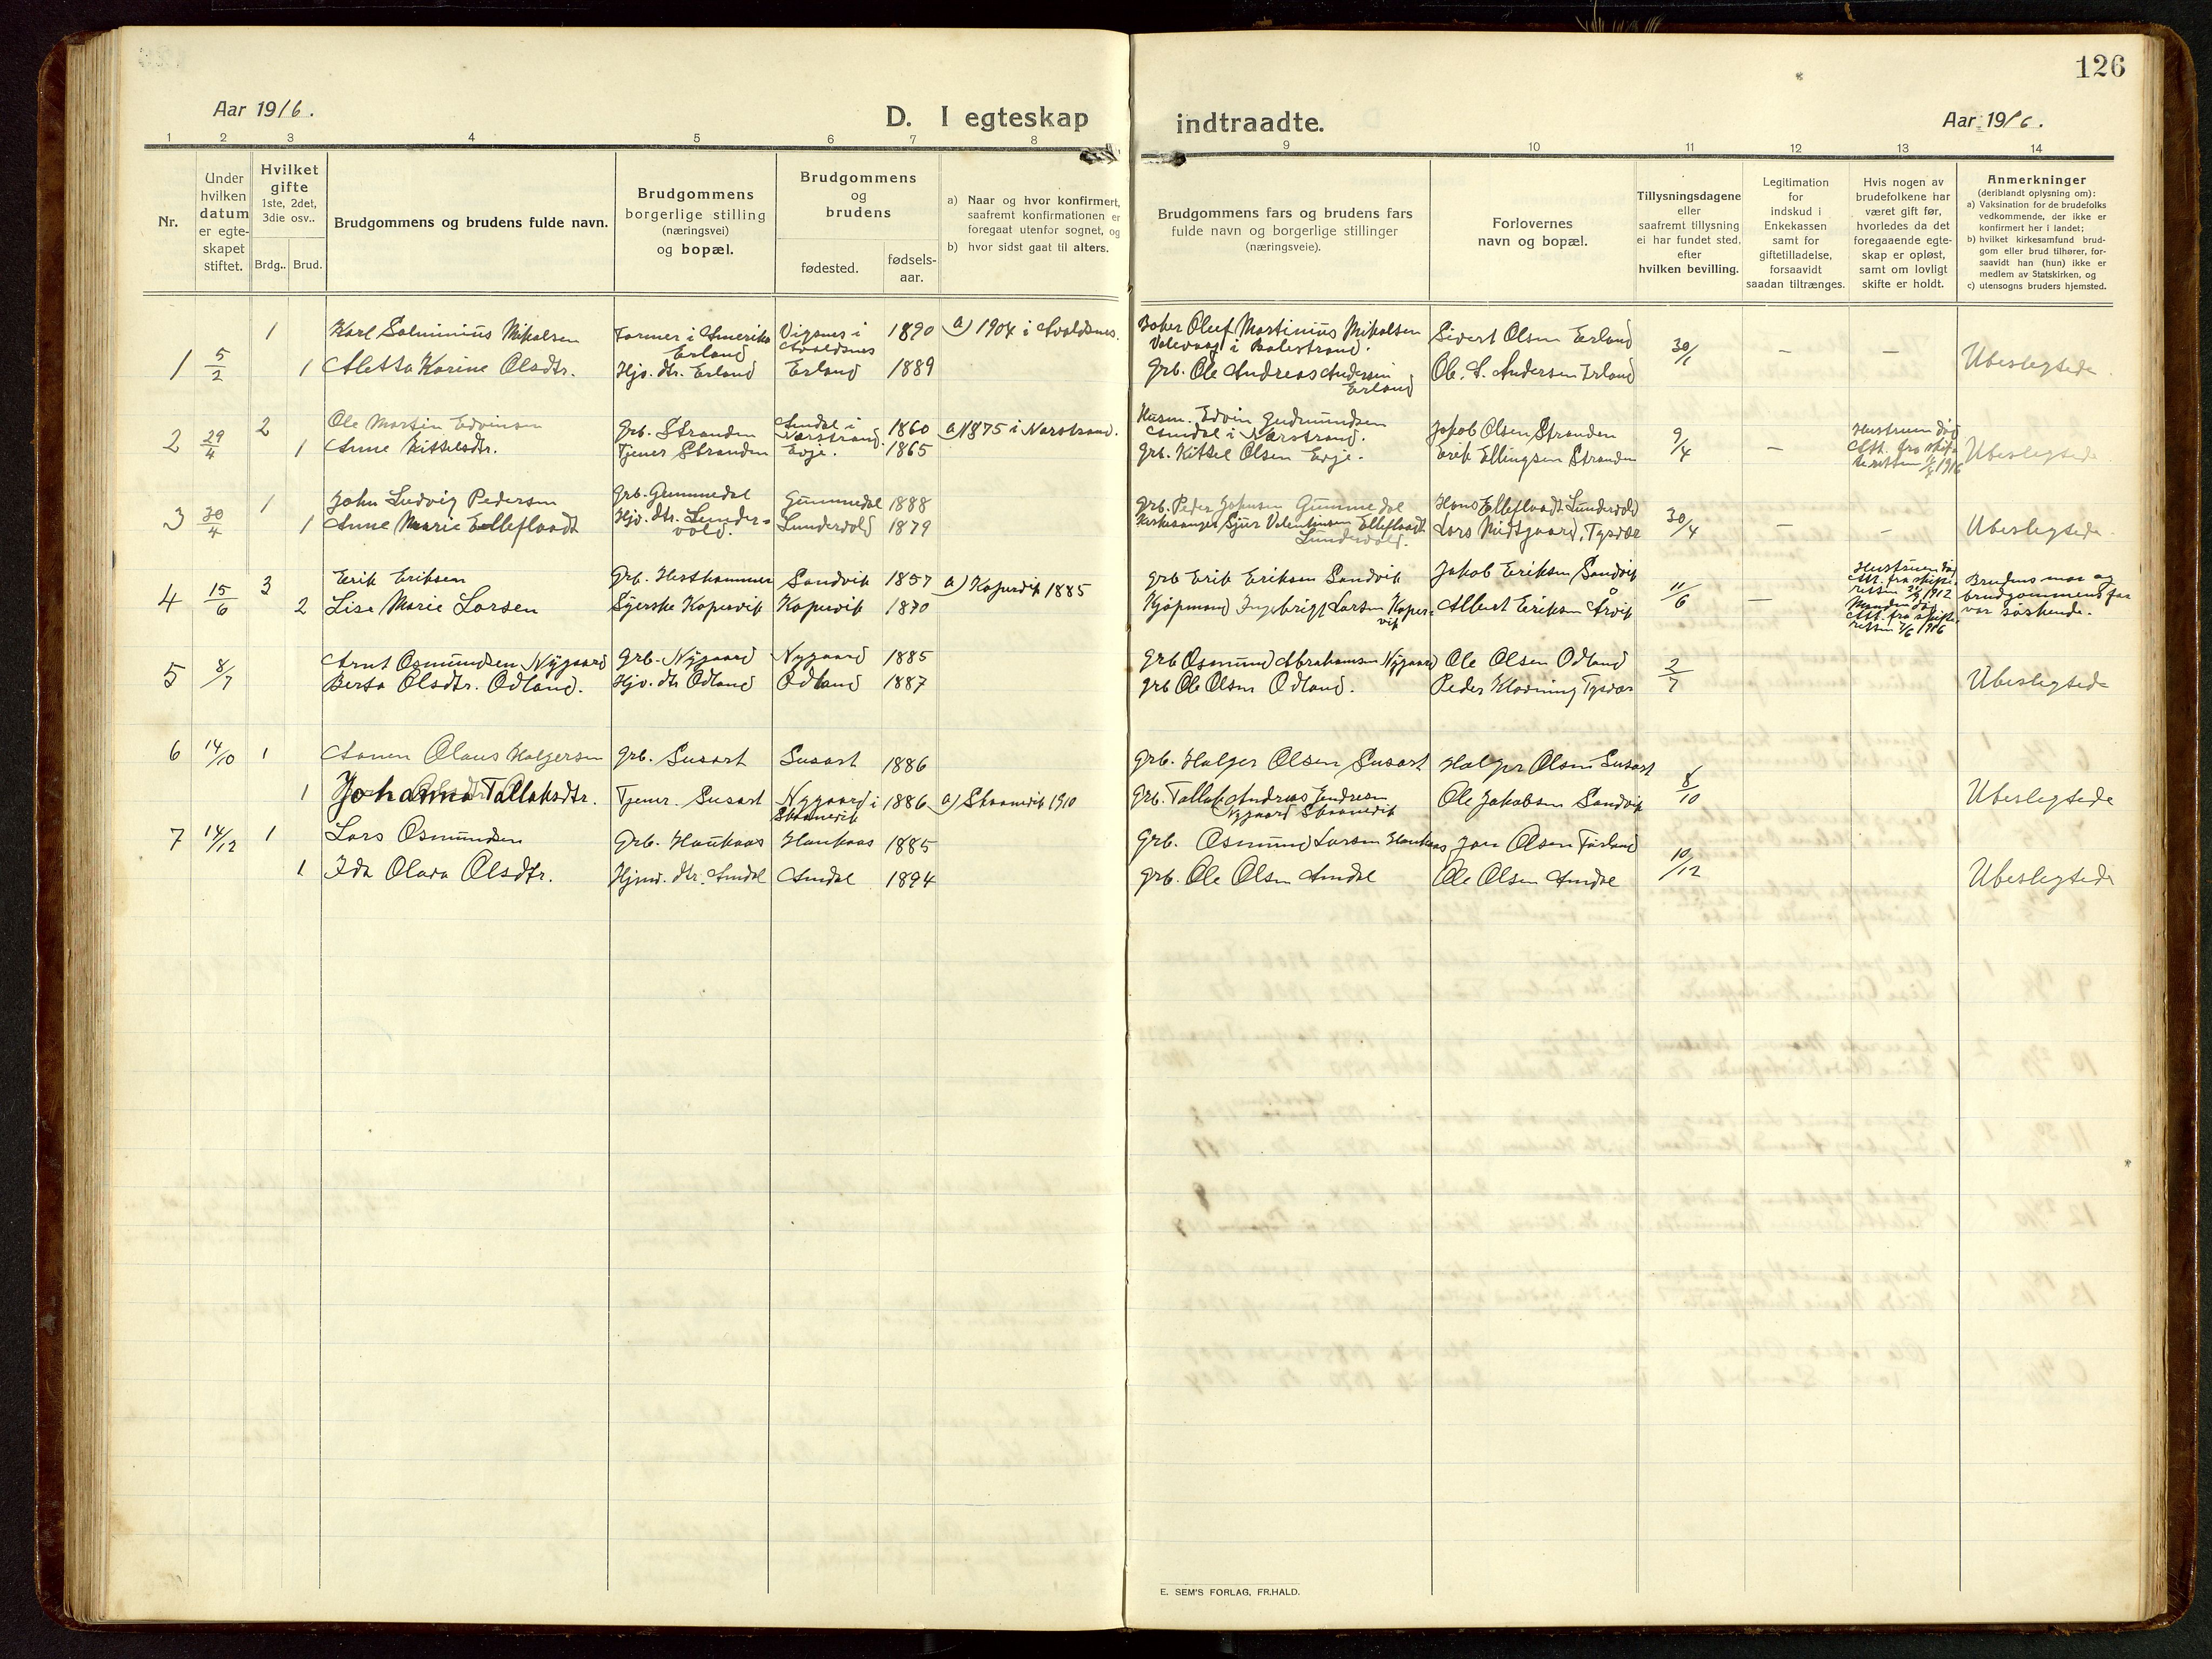 126
Aar 1916.
D. I egteskap indtraadte.
Aar 1916.
1 2 3 4 5 6 7 8 9 10 11 12 13 14
Nr.
Under
hvilken
datum
er egte-
skapet
stiftet.
Hvilket
gifte
1ste, 2det,
3die osv..
Brdg.. Brud.
Brudgommens og brudens fulde navn.
Brudgommens
borgerlige stilling
(næringsvei)
og bopæl.
Brudgommens
og
brudens
fødested.
fødsels-
aar.
a) Naar og hvor konfirmert,
saafremt konfirmationen er
foregaat utenfor sognet, og
b) hvor sidst gaat til alters.
Brudgommens fars og brudens fars
fulde navn og borgerlige stillinger
(næringsveie).
Forlovernes
navn og bopæl.
Tillysningsdagene
eller
saafremt tillysning
ei har fundet sted,
efter
hvilken bevilling.
Legitimation
for
indskud i
Enkekassen
samt for
giftetilladelse,
forsaavidt
saadan tiltrænges.
Hvis nogen av
brudefolkene har
været gift før,
hvorledes da det
foregaaende egte-
skap er opløst,
samt om lovligt
skifte er holdt.
Anmerkninger
(deriblandt oplysning om):
a) Vaksination for de brudefolks
vedkommende, der ikke er
konfirmert her i landet;
b) hvilket kirkesamfund brud-
gom eller brud tilhører, for-
saavidt han (hun) ikke er
medlem av Statskirken, og
c) utensogns bruders hjemsted.
1 5/2
1 Karl Salminius Mikalsen Farmer i Amerika Erland Vigsnes i Avaldsnes 1890 a) 1904 i Avaldsnes. Oluf Martinius Mikalsen Sivert Olsen Erland 30/1 – –
1 Aletta Karine Olsdtr. Hjv. dtr. Erland Erland 1889 Grb. Ole Andreas Andersen Erland Ole. A. Andersen Erland Ubeslegtede.
2 29/4
2 Ole Martin Edvinsen Grb. Stranden Amdal i Nærstrand. 1860 a) 1875 i Nærstrand. Husm. Edvin Gudmundsen Amdal i Nærstrand. Jakob Olsen Stranden 9/4 – Hustruen død
1 Anne Kittelsdtr. Tjener Stranden Evje. 1865 Grb. Kittel Olsen Evje. Erik Ellingsen Stranden Ubeslegtede
3 30/4
1 John Ludvig Pedersen Grb. Gummedal Gummedal 1888 Grb. Peder Johnsen Gummedal Hans Elleflaadt Lundervold 30/4 – –
1 Anne Marie Elleflaadt Hjv. dtr. Lunder-vold. Lundervold 1879 Kirkesanger Sjur Valentinsen Elleflaadt Lundervold. Lars Midtgaard, Tysvær Ubeslegtede.
4 15/6
3 Erik Eriksen Grb. Hesthammer Sandvik 1857 a) Kopervik 1885 Grb Erik Eriksen Sandvik Jakob Eriksen Sandvik 11/6 – Hustruen død Att. fra skifte-retten 1912
2 Lise Marie Larsen Syerske Kopervik Kopervik 1870 Kjøpmand Ingebrigt Larsen Koper-vik Albert Eriksen Årvik Manden død Att. fra skifte-retten 7/6 1916 Brudens mor og brudgommens far var søskende.
5 8/7
Arnt Osmundsen Nygaard Grb. Nygaard Nygaard 1885 Grb Osmund Abrahamsen Nygaard Ole Olsen Ødland 2/7
Berta Olsdtr. Ødland. Hjv. dtr Ødland Ødland 1887 Grb Ole Olsen Ødland. Peder Tysvær Ubeslegtede
6 14/10
1 Aanen Olaus Holgersen Grb. Susort Susort 1886 Grb. Holger Olsen Susort Holger Olsen Susort 8/10
1 Johanna Tallaksdtr. Tjener. Susort Nygaard i Skaanevik 1886 a) Skaanevik 1910 Grb. Tallak Andreas Endresen Nygaard Skaanevik Ole Jakobsen Sandvik Ubeslegtede
7 14/12
1 Lars Osmundsen Grb. Haukaas Haukaas 1885 Grb. Osmund Larsen Haukaas Jon Olsen Førland 10/12
1 Ida Olava Olsdtr. Hjmv. dtr. Amdal Amdal 1894 Grb. Ole Olsen Amdal Ole Olsen Amdal Ubeslegtede
E. SEM'S FORLAG, FR.HALD.